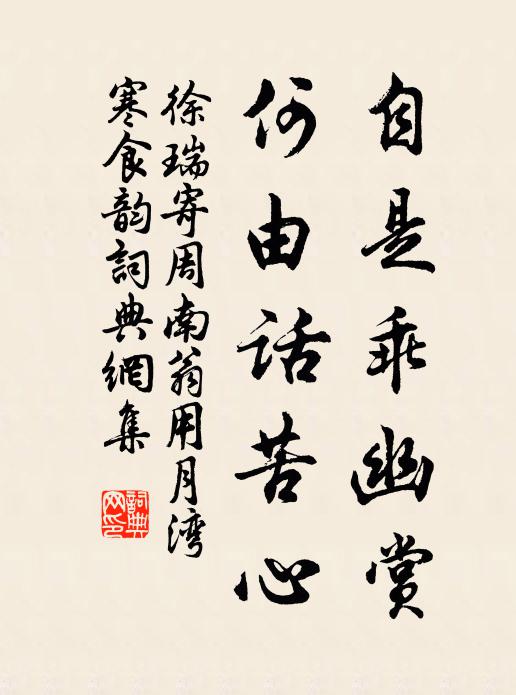 自是乖幽赏
何由话苦心
徐瑞寄周南翁用月湾
寒食韵詞典網集
詞典网印